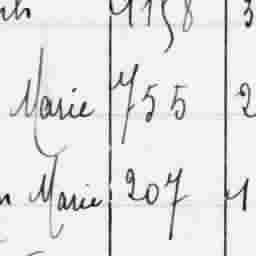 1158 3
Marie 755 2
Marie 207 1